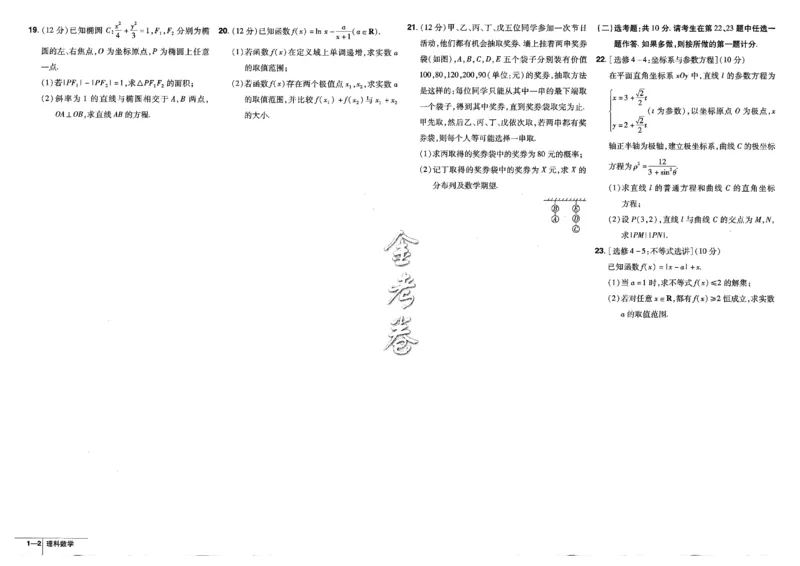 19. (12分)已知椭圆 C: x²/4 + y²/3 = 1, F₁, F₂ 分别为椭
圆的左、右焦点, O 为坐标原点, P 为椭圆上任意
一点.
(1)若|PF₁| - |PF₂| = 1, 求△PF₁F₂ 的面积;
(2)斜率为 1 的直线与椭圆相交于 A, B 两点,
OA⊥OB, 求直线 AB 的方程.
20. (12分)已知函数 f(x) = ln x - a/(x+1) (a∈R).
(1)若函数 f(x) 在定义域上单调递增, 求实数 a
的取值范围;
(2)若函数 f(x) 存在两个极值点 x₁, x₂, 求实数 a
的取值范围, 并比较 f(x₁) + f(x₂) 与 x₁ + x₂
的大小.
21. (12分)甲、乙、丙、丁、戊五位同学参加一次节日
活动, 他们都有机会抽取奖券. 墙上挂着两串奖券
袋(如图), A, B, C, D, E 五个袋子分别装有价值
100, 80, 120, 200, 90(单位: 元)的奖券, 抽取方法
是这样的: 每位同学只能从其中一串的最下端取
一个袋子, 得到其中奖券, 直到奖券取完为止.
甲先取, 然后乙、丙、丁、戊依次取, 若两串都有奖
券袋, 则每个人等可能选择一串取.
(1)求丙取得的奖券袋中的奖券为 80 元的概率;
(2)记丁取得的奖券袋中的奖券为 X 元, 求 X 的
分布列及数学期望.
Ⓑ Ⓔ
Ⓐ Ⓓ
Ⓒ
(二)选考题: 共 10 分. 请考生在第 22、23 题中任选一
题作答. 如果多做, 则按所做的第一题计分.
22. [选修 4-4: 坐标系与参数方程](10 分)
在平面直角坐标系 xOy 中, 直线 l 的参数方程为
{ x = 3 + √2/2 t
y = 2 + √2/2 t (t 为参数), 以坐标原点 O 为极点, x
轴正半轴为极轴, 建立极坐标系, 曲线 C 的极坐标
方程为 ρ² = 12/(3 + sin²θ).
(1)求直线 l 的普通方程和曲线 C 的直角坐标
方程;
(2)设 P(3,2), 直线 l 与曲线 C 的交点为 M, N,
求|PM||PN|.
23. [选修 4-5: 不等式选讲](10 分)
已知函数 f(x) = |x - a| + x.
(1)当 a = 1 时, 求不等式 f(x) ≤ 2 的解集;
(2)若对任意 x∈R, 都有 f(x) ≥ 2 恒成立, 求实数
a 的取值范围.
金考卷
1—2 理科数学